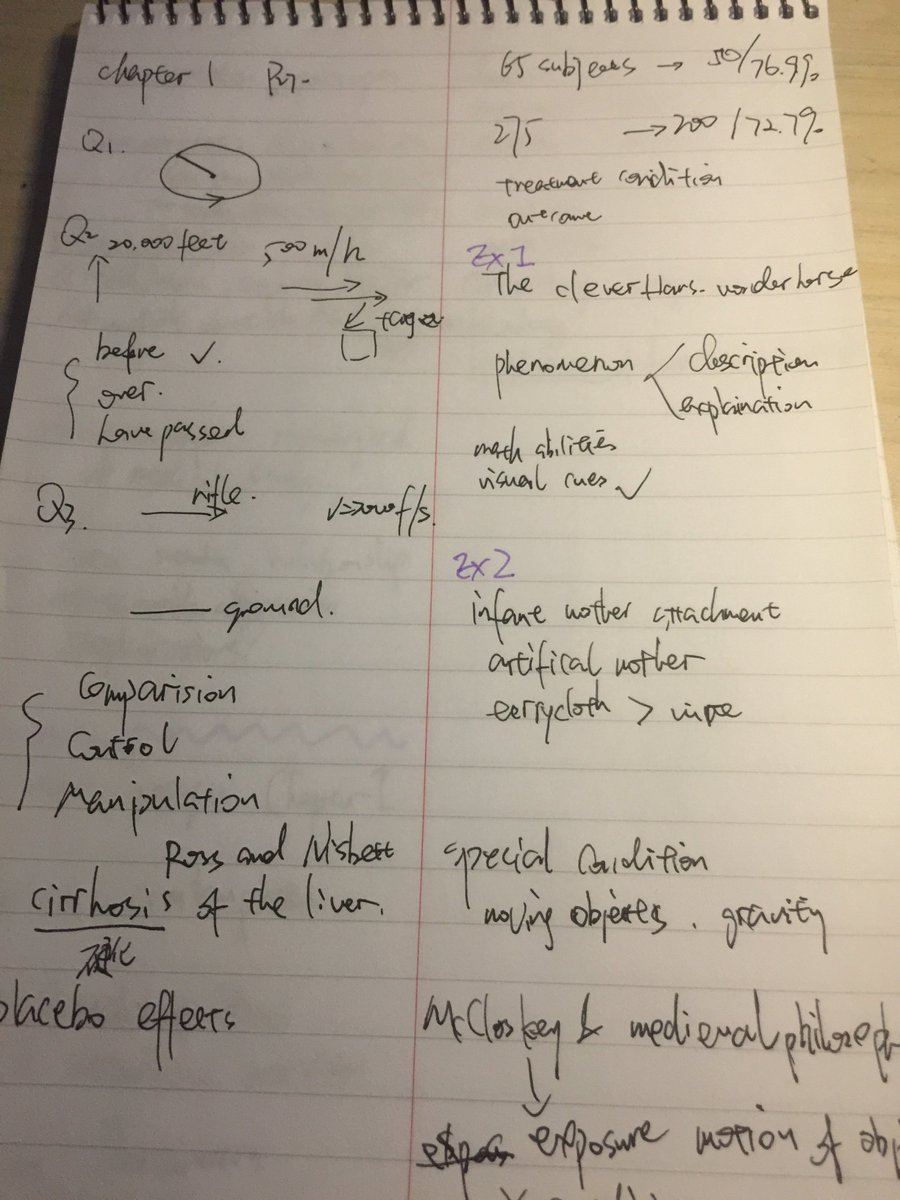 chapter 1
Q1.
Q2 20,000 feet 500 m/h
before ✓.
over.
have passed
Q3. rifle.
ground.
Comparision
Control
Manipulation
Ross and Nisbett
cirrhosis of the liver.
硬化
placebo effects
65 subjects → 50/76.9%
275 → 200/72.7%
treatment condition
outcome
Ex 1
The clever Hans. wonder horse
phenomenon description
explaination
math abilities
visual cues ✓
Ex 2
infant mother attachment
artifical mother
terrycloth > wire
special condition
moving objects. gravity
McCloskey & medieval
exposure motion of